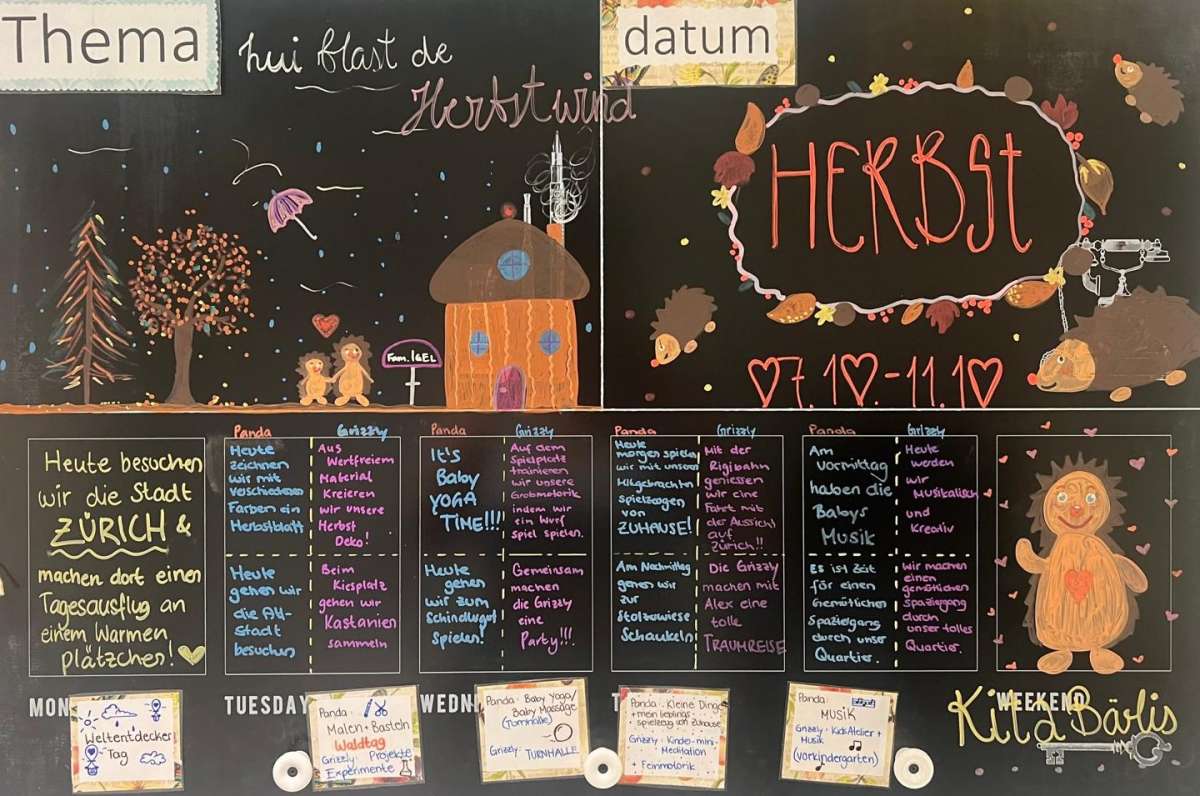 Thema
hui blast de
Herbstwind
datum
HERBSt
07.10.-11.10
Fam. IGEL
Heute besuchen
wir die Stadt
ZÜRICH &
machen dort einen
Tagesausflug an
einem Warmen
plätzchen!
Panda
Heute
zeichnen
wir mit
verschiedenen
Farben ein
Herbstblatt
Grizzly
Aus
Wertfreiem
Material
Kreieren
wir unsere
Herbst
Deko!
Heute
gehen wir
die Alt-
Stadt
besuchen
Beim
Kiesplatz
gehen wir
Kastanien
sammeln
Panda
It's
Baby
YOGA
TIME!!!
Grizzly
Auf dem
Spielplatz
trainieren
wir unsere
Grobmotorik
indem wir
ein Wurf
spiel spielen.
Heute
gehen
wir zum
Schindlergut
Spielen!
Gemeinsam
machen
die Grizzly
eine
Party!!!
Panda
Heute
morgen spielen
wir mit unseren
Mitgebrachten
spielzeugen
von
ZUHAUSE!
Grizzly
Mit der
Rigibahn
geniessen
wir eine
Fahrt mit
der Aussicht
auf
Zürich!!
Am Nachmittag
gehen wir
zur
Stolzewiese
Schaukeln
Die Grizzly
machen mit
Alex eine
tolle
TRAUMREISE
Panda
Am
vormittag
haben die
Babys
Musik
Grizzly
Heute
werden
wir
Musikalisch
und
Kreativ
Es ist Zeit
für einen
Gemütlichen
Spaziergang
durch unser
Quartier.
Wir machen
einen
gemütlichen
spaziergang
durch
unser tolles
Quartier.
MON
TUESDAY
WEDN
T
WEEKEND
Kita Bärlis
Weltentdecker
Tag
Panda:
Malen+Basteln
Waldtag
Grizzly: Projekte
Experimente
Panda: Baby Yoga/
Baby Massage
(Turnhalle)
Grizzly: TURNHALLE
Panda: Kleine Dinge
+ mein lieblings
spielzeug von Zuhause
Grizzly: Kinder-mini-
Meditation
+ Feinmotorik
Panda:
MUSIK
Grizzly: KidsAtelier+
Musik
(Vorkindergarten)